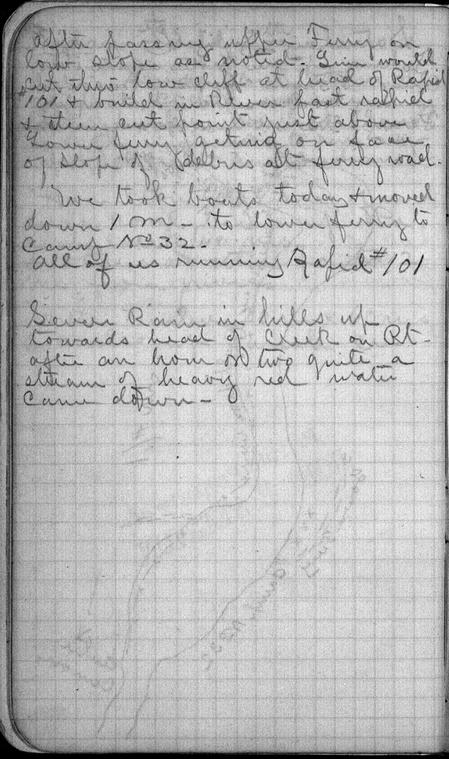 after passing upper Ferry on
low slope as noted. Line would
cut thro low cliff at head of Rapid
101 & build in River past rapid
& then cut point just above
Lower ferry getting on face
of slope of debris at ferry road.
We took boats today & moved
down 1 m - to lower ferry to
Camp No 32.
All of us running Rapid #101
Sever Rain in hills up
towards head of Creek on Rt-
after an hour or two quite a
stream of heavy red water
came down -